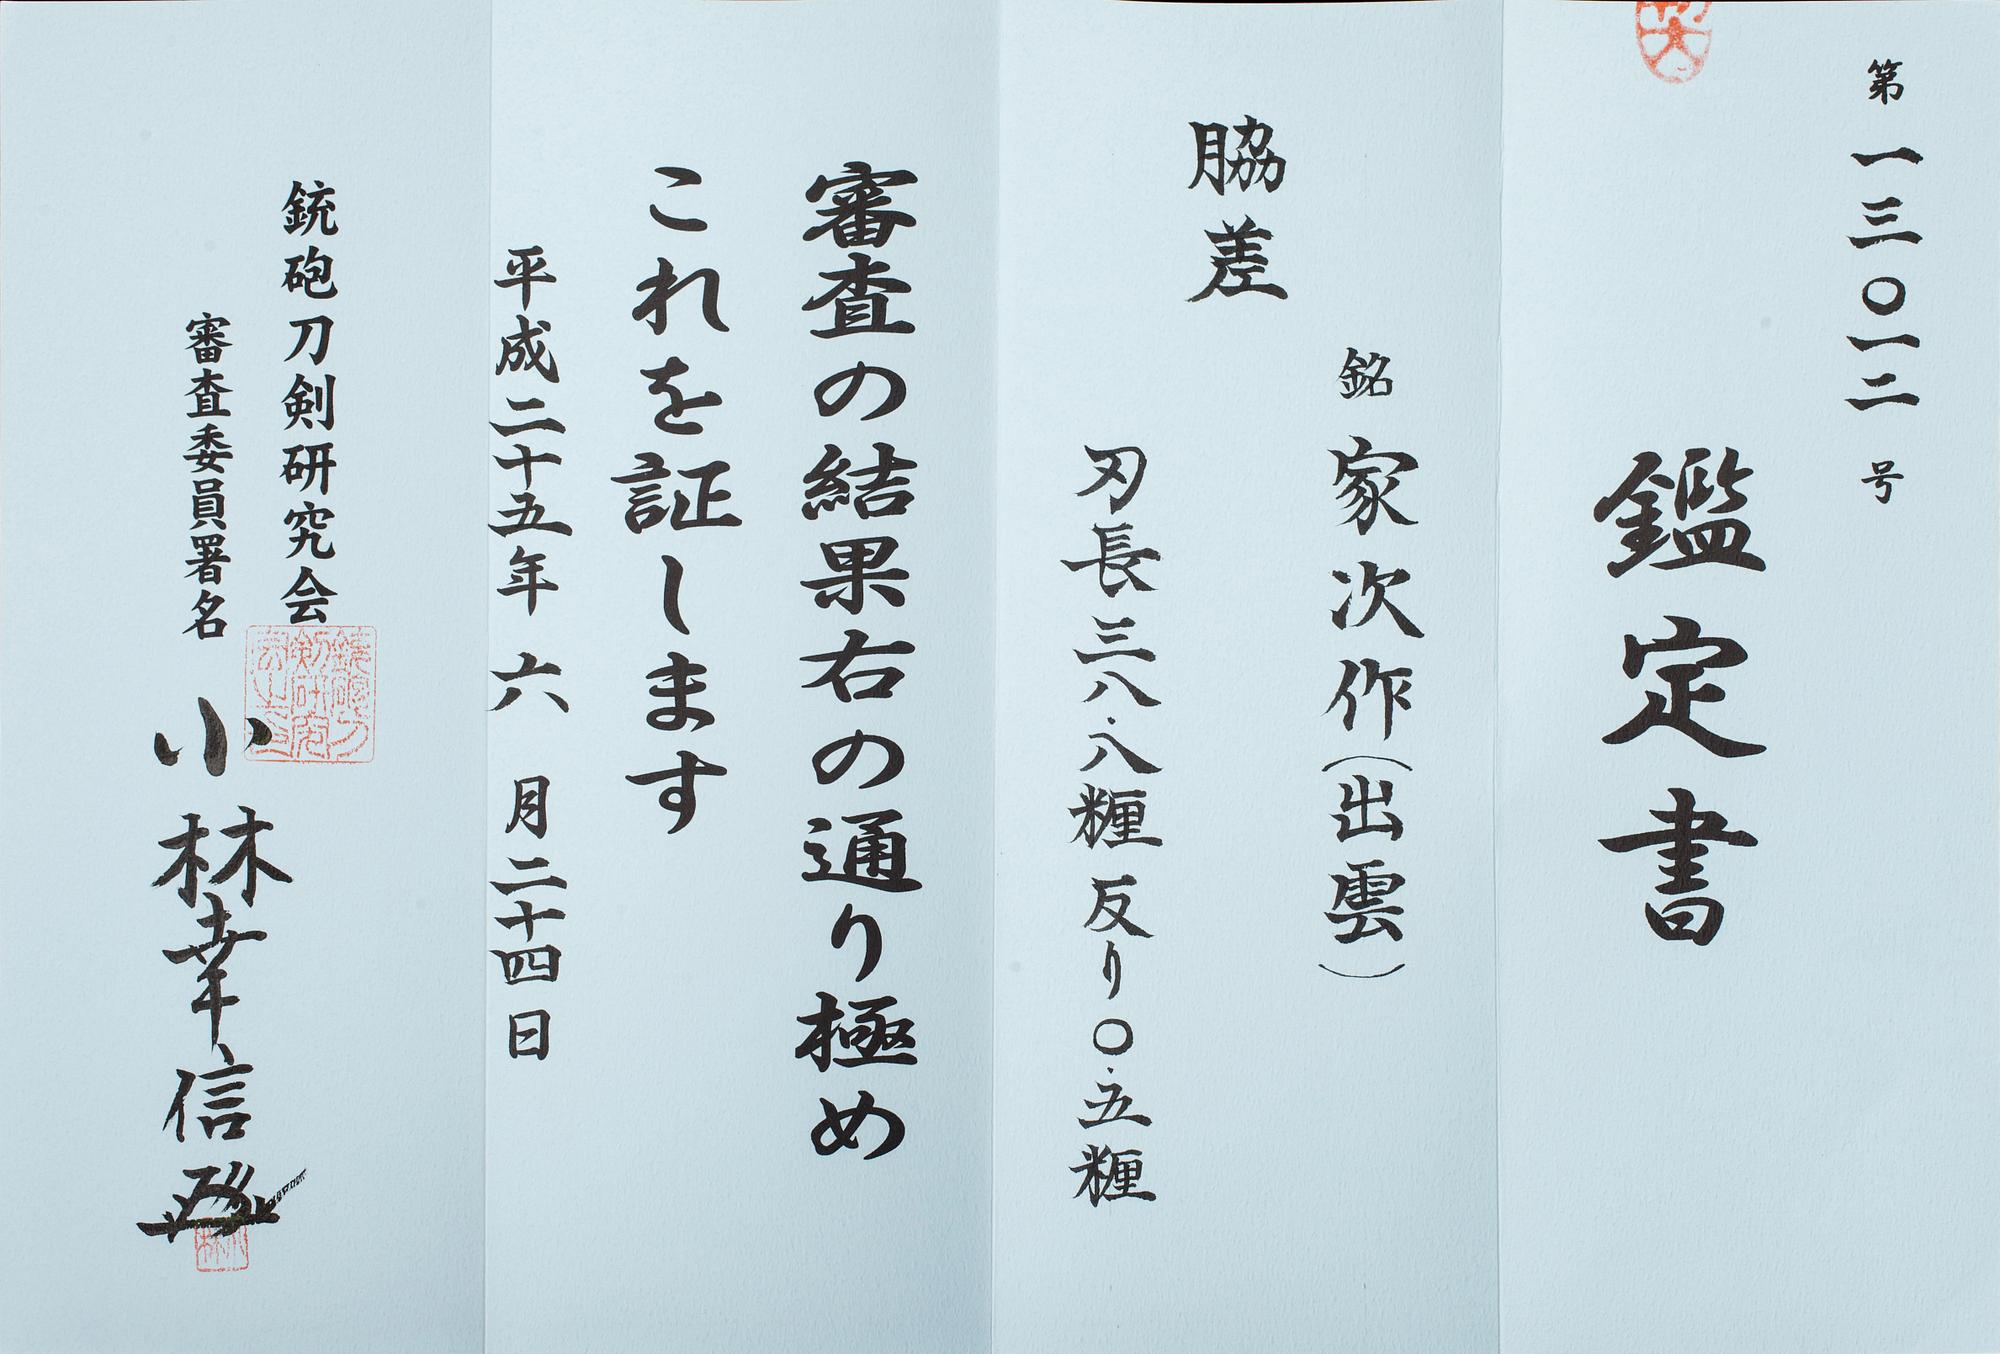 第一三〇一二号
鑑定書
脇差
銘 家次作(出雲)
刃長三八.八糎 反り〇.五糎
審査の結果右の通り極め
これを証します
平成二十五年六月二十四日
銃砲刀剣研究会
審査委員署名 小林幸信